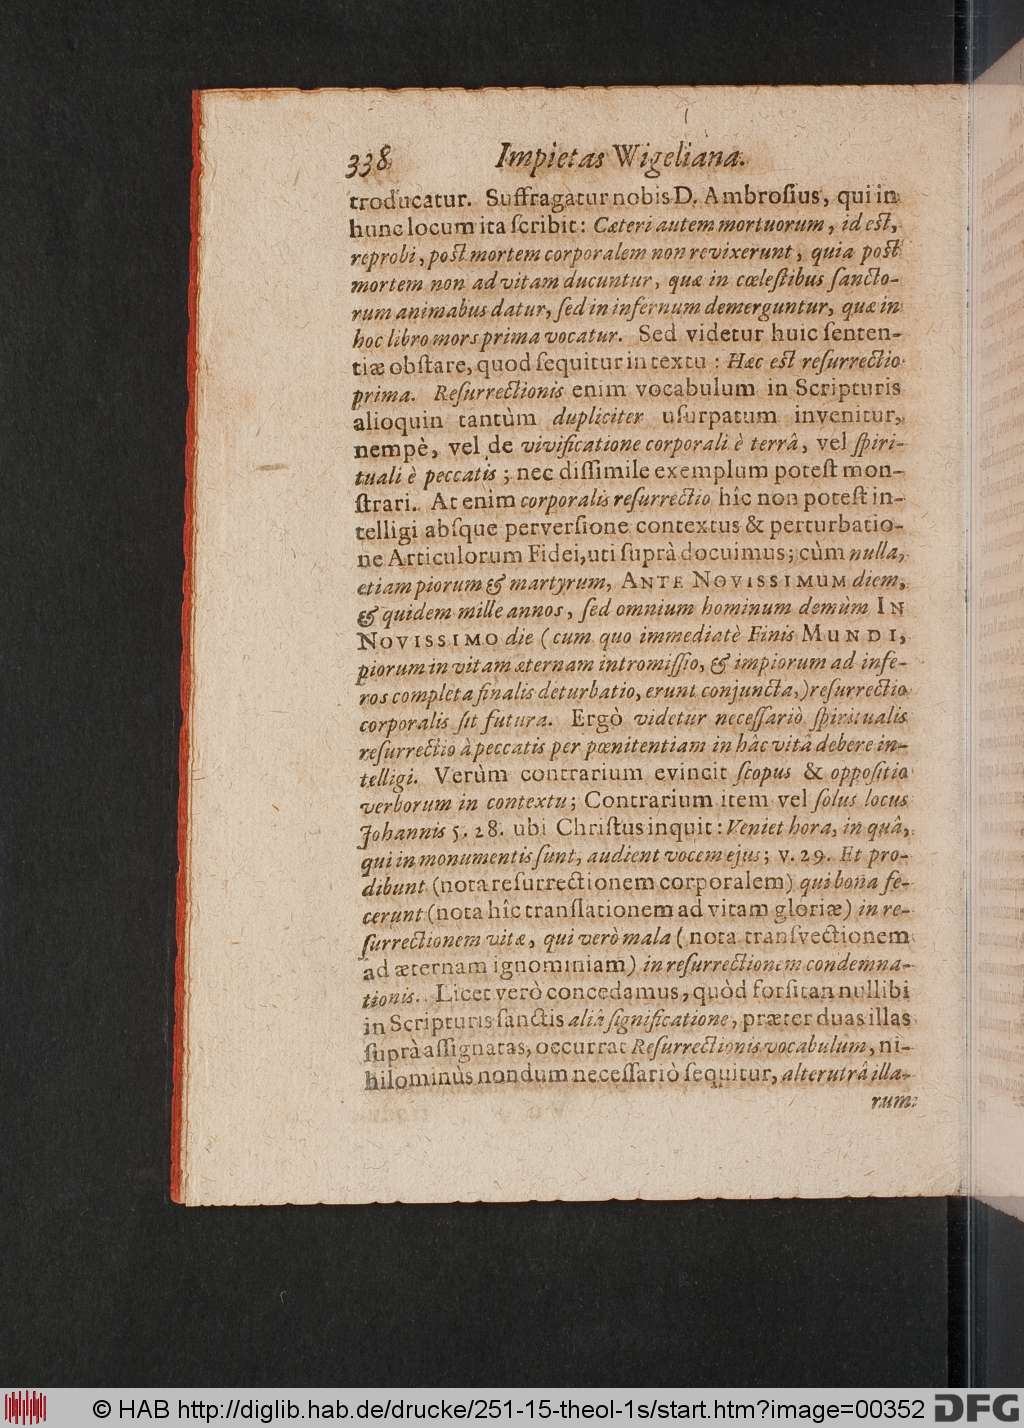 338 Impietas Wigeliana.
troducatur. Suffragatur nobis D. Ambroſius, qui in
hunc locum ita ſcribit: Cæteri autem mortuorum, id eſt,
reprobi, poſt mortem corporalem non revixerunt, quia poſt
mortem non ad vitam ducuntur, quæ in cœleſtibus ſancto-
rum animabus datur, ſed in infernum demerguntur, quæ in
hoc libro mors prima vocatur. Sed videtur huic ſenten-
tiæ obſtare, quod ſequitur in textu : Hæc eſt reſurrectio
prima. Reſurrectionis enim vocabulum in Scripturis
alioquin tantùm dupliciter uſurpatum invenitur,
nempè, vel de vivificatione corporali è terrâ, vel ſpiri-
tuali è peccatis ; nec diſſimile exemplum poteſt mon-
ſtrari. At enim corporalis reſurrectio hîc non poteſt in-
telligi abſque perverſione contextus & perturbatio-
ne Articulorum Fidei, uti ſuprà docuimus; cùm nulla,
etiam piorum & martyrum, ANTE NOVISSIMUM diem,
& quidem mille annos, ſed omnium hominum demùm IN
NOVISSIMO die ( cum quo immediatè Finis MUNDI,
piorum in vitam æternam intromiſſio, & impiorum ad infe-
ros completa finalis deturbatio, erunt conjuncta,) reſurrectio
corporalis ſit futura. Ergò videtur neceſſariò ſpiritualis
reſurrectio à peccatis per pœnitentiam in hâc vitâ debere in-
telligi. Verùm contrarium evincit ſcopus & oppoſitio
verborum in contextu; Contrarium item vel ſolus locus
Johannis 5. 28. ubi Chriſtus inquit: Veniet hora, in quâ,
qui in monumentis ſunt, audient vocem ejus; v. 29. Et pro-
dibunt (nota reſurrectionem corporalem) qui bona fe-
cerunt (nota hîc tranſlationem ad vitam gloriæ) in re-
ſurrectionem vitæ, qui verò mala ( nota tranſvectionem
ad æternam ignominiam) in reſurrectionem condemna-
tionis. Licet verò concedamus, quòd forſitan nullibi
in Scripturis ſanctis aliâ ſignificatione, præter duas illas
ſuprà aſſignatas, occurrat Reſurrectionis vocabulum, ni-
hilominùs nondum neceſſariò ſequitur, alterutrâ illa-
rum
© HAB http://diglib.hab.de/drucke/251-15-theol-1s/start.htm?image=00352 DFG